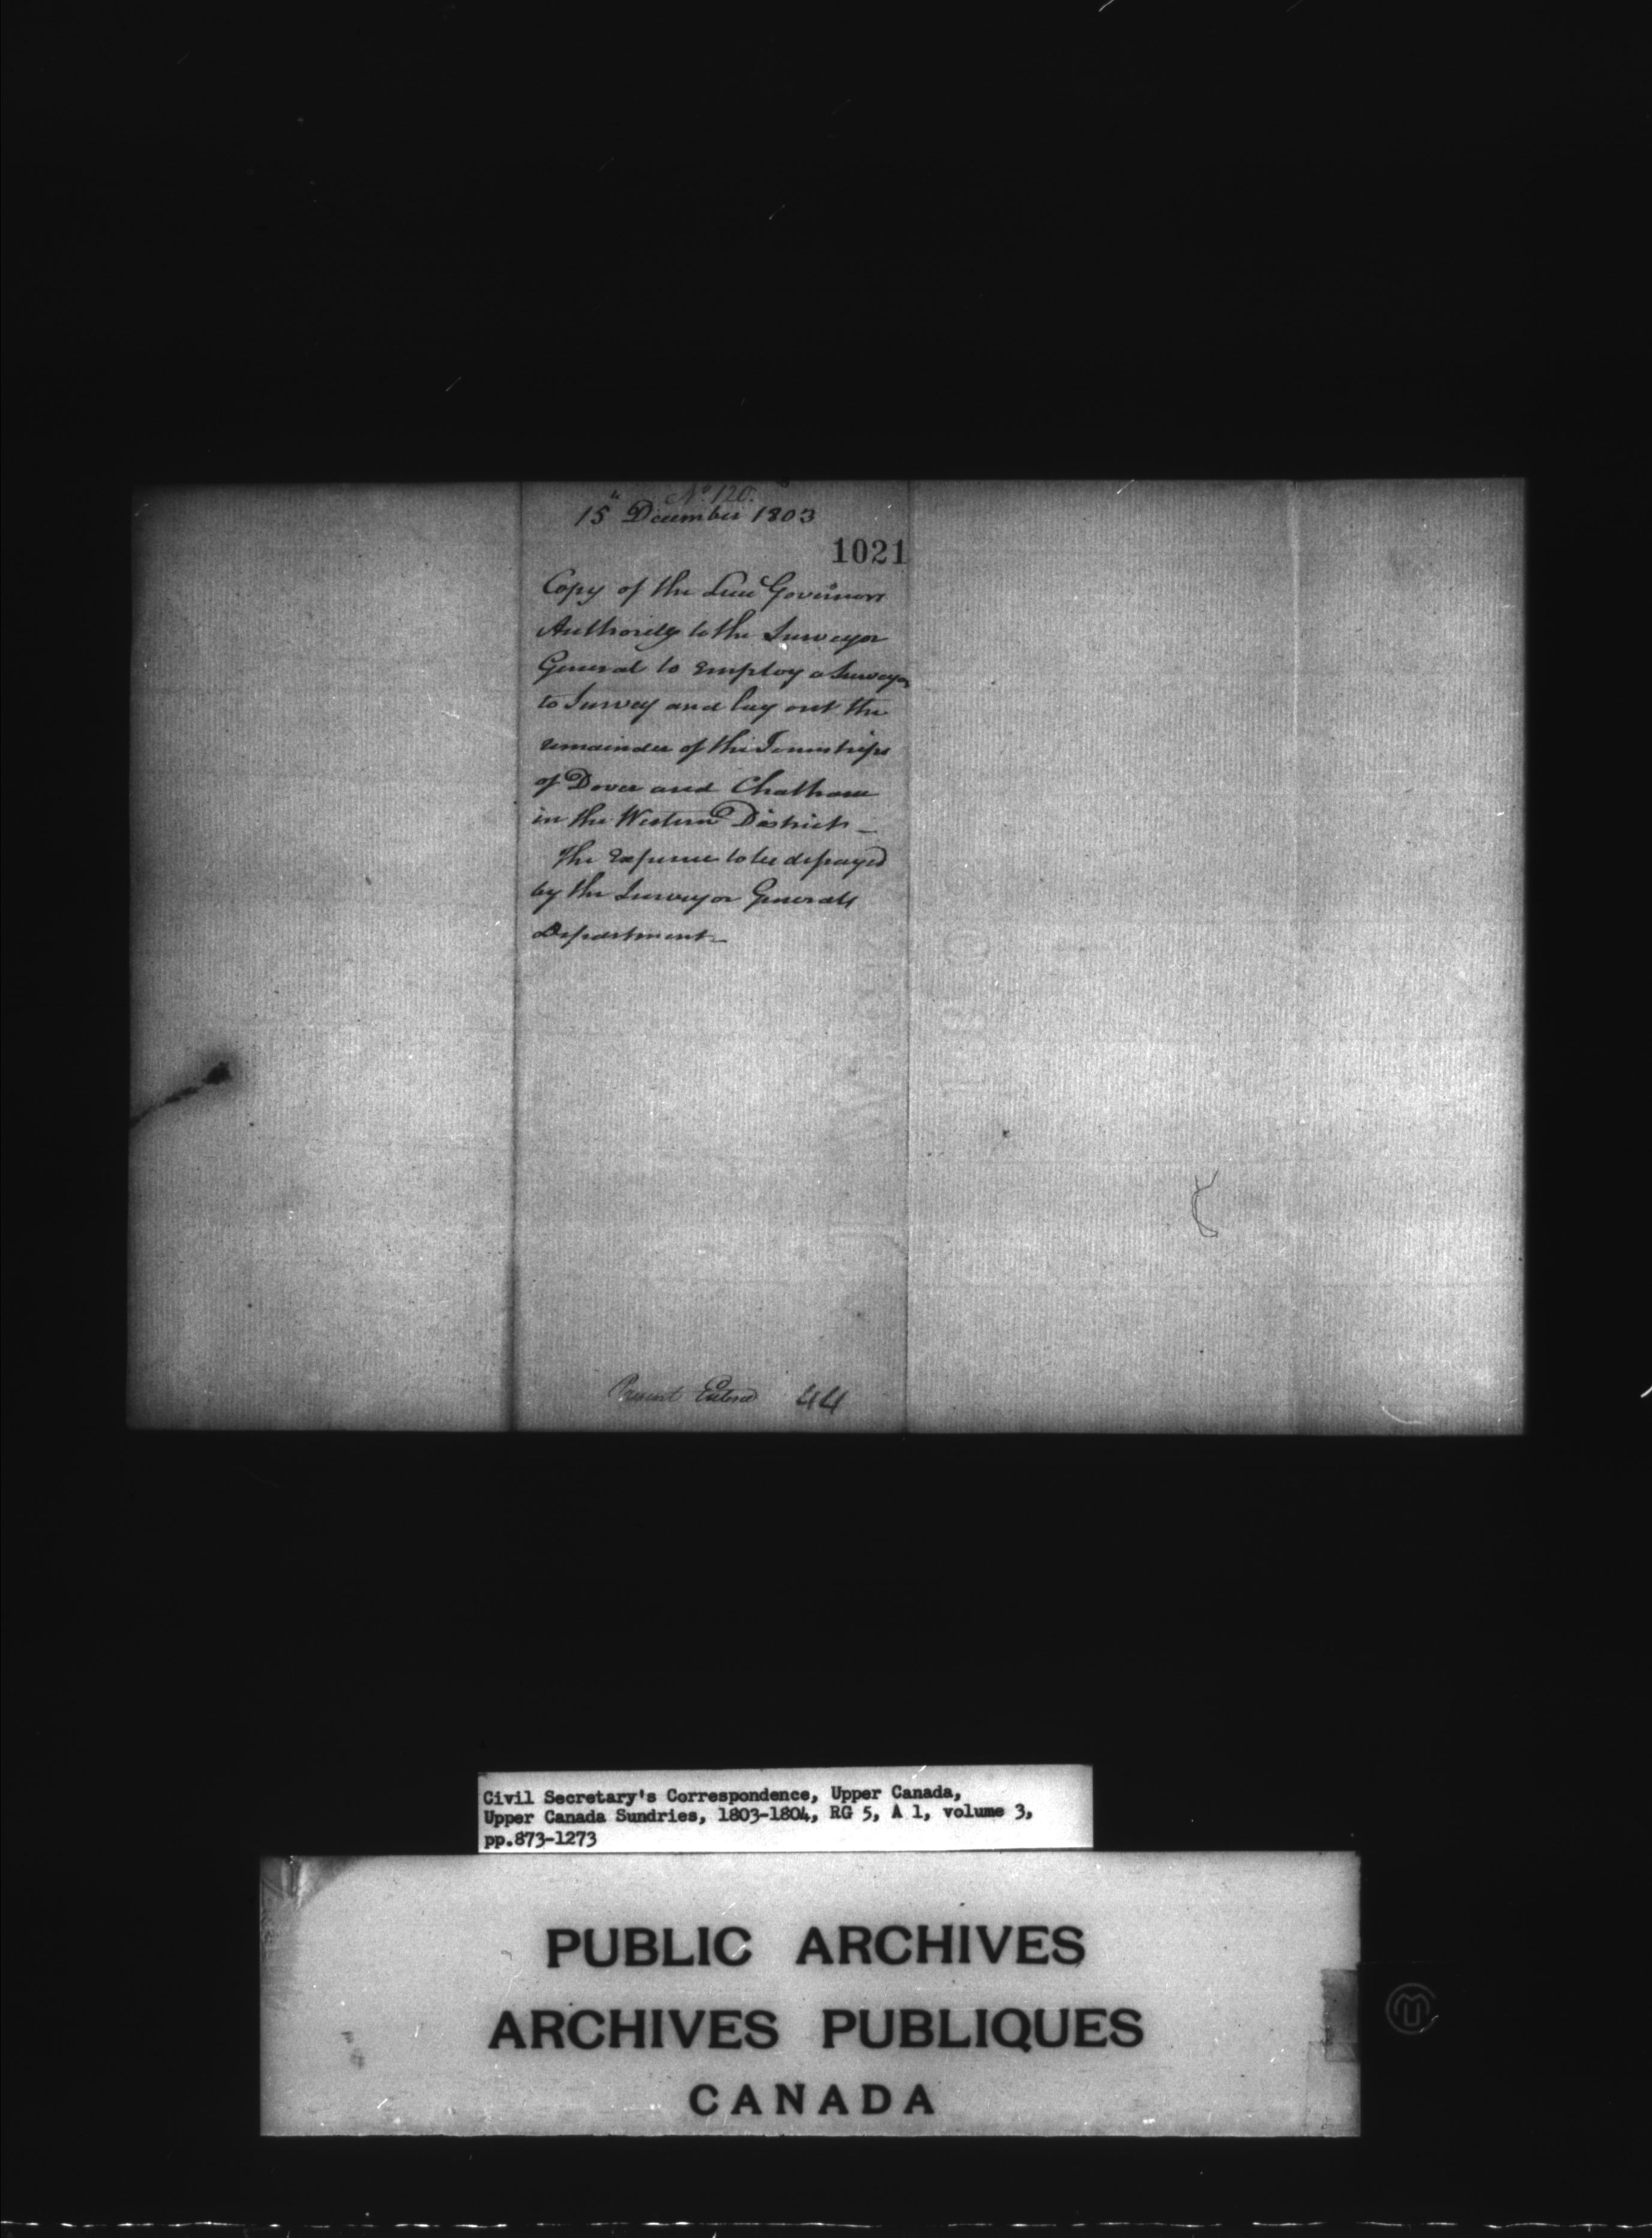 No. 120.
15th December 1803
1021
Copy of the Lieu Governors
Authority to the Surveyor
General to employ a Surveyor
to Survey and lay out the
remainder of the Townships
of Dover and Chatham
in the Western District_
The Expence to be defrayed
by the Surveyor Generals
Department_
Present Entered 44
Civil Secretary's Correspondence, Upper Canada,
Upper Canada Sundries, 1803-1804, RG 5, A 1, volume 3,
pp.873-1273
PUBLIC ARCHIVES
ARCHIVES PUBLIQUES
CANADA